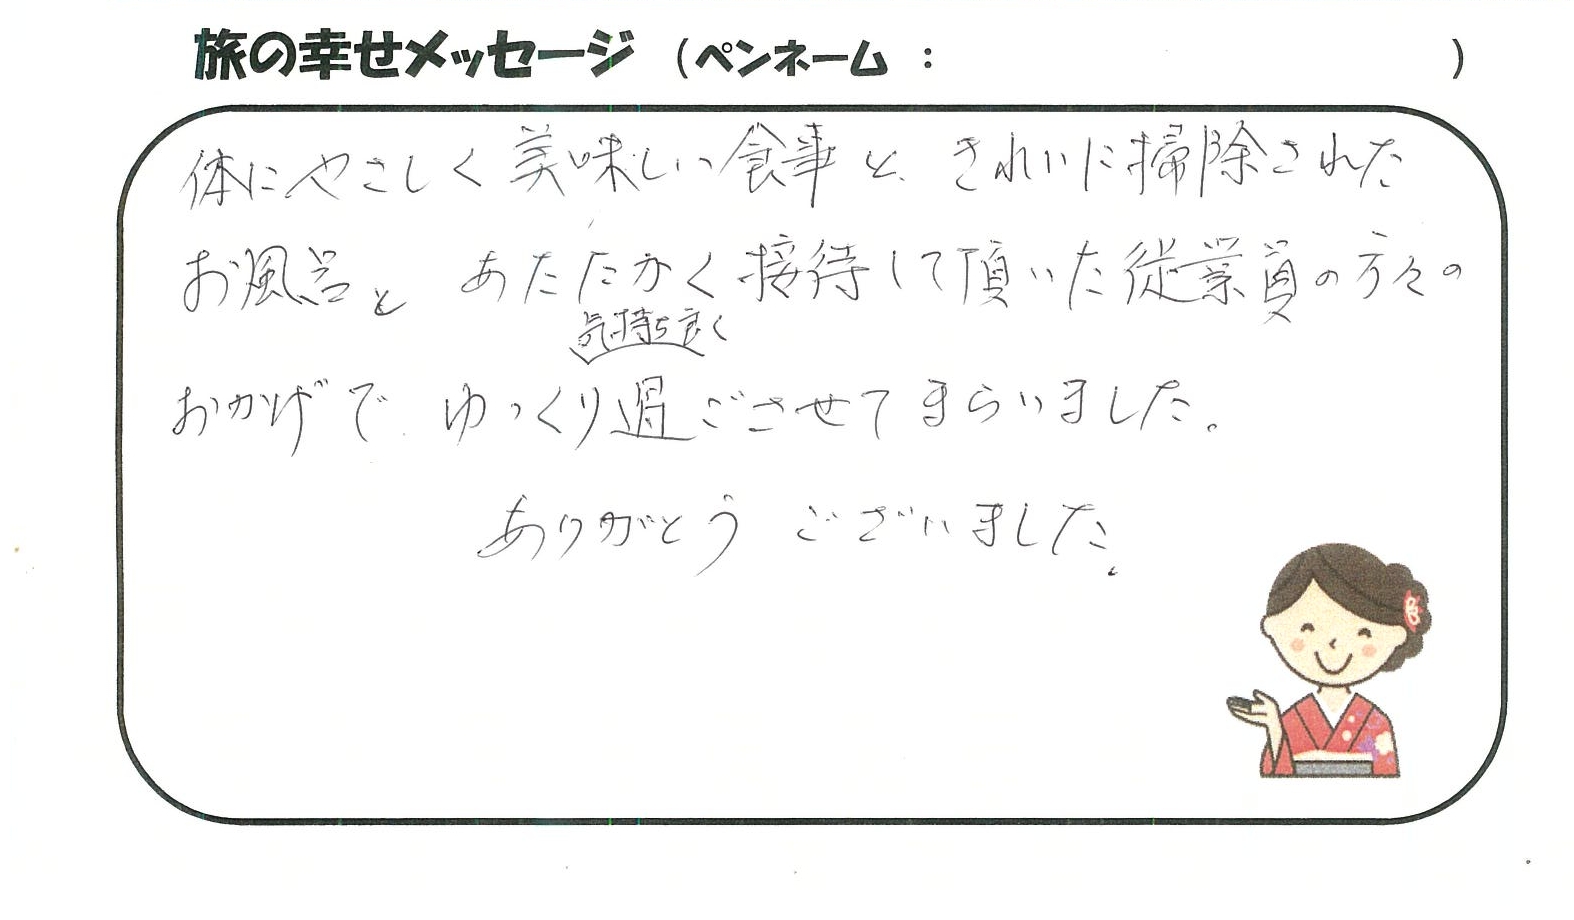 旅の幸せメッセージ (ペンネーム : )
体にやさしく美味しい食事と、きれいに掃除された
お風呂と あたたかく接待して頂いた従業員の方々の
気持ち良く
おかげで ゆっくり過ごさせてまらいました。
ありがとう ございました。